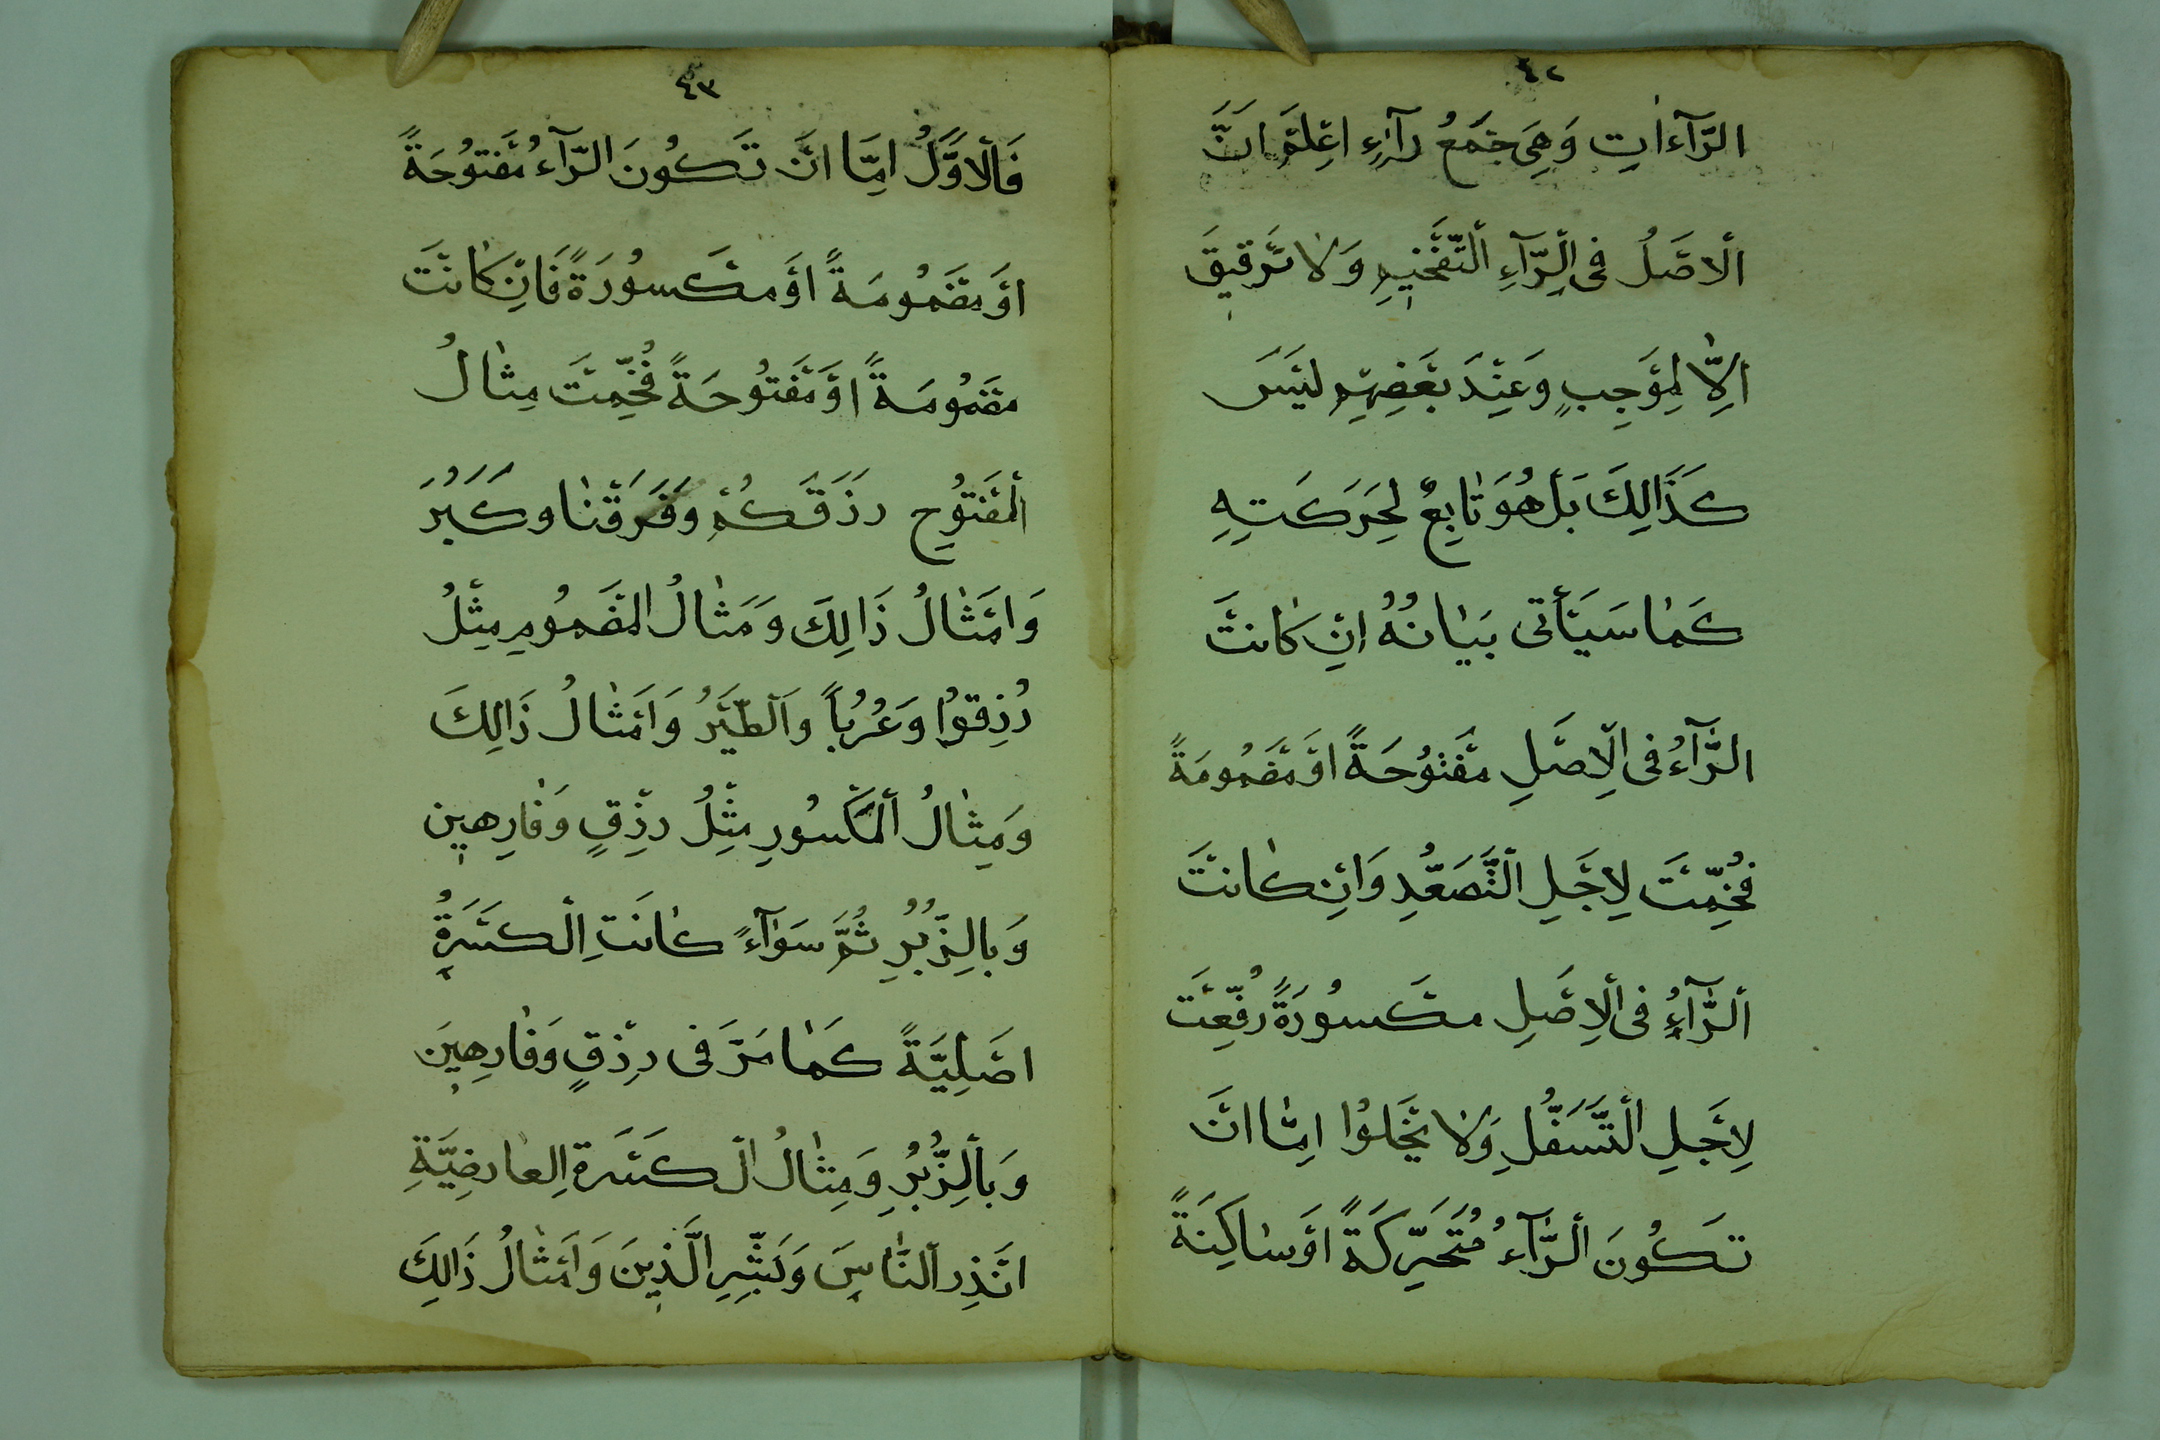 ٤٢
الرَّآءٰاتِ وَهِيَ جَمْعُ رَآءٍ اعْلَمْ اَنَّ
اَلْاَصْلُ فِى الرَّآءِ اَلتَّفْخِيمِ وَلَا تَرْقِيقَ
اِلَّا لِمُوْجِبٍ وَعِنْدَ بَعْضِهِمْ لَيْسَ
كَذَالِكَ بَلْ هُوَ تٰابِعٌ لِحَرَكَتِهِ
كَمٰا سَيَأْتى بَيٰانُهُ اِنْ كٰانَتْ
الرَّآءُ فِى الْاَصْلِ مَفْتُوْحَةً اَوْ مَضْمُومَةً
فُخِّمَتْ لِاَجْلِ التَّصَعُّدِ وَاِنْ كٰانَتْ
اَلرَّآءُ فِى الْاَصْلِ مَكْسُورَةً رُقِّقَتْ
لِاَجْلِ الْتَّسَفُّلِ وَلٰا يَخْلُوْا اِمّٰا اَنْ
تَكُوْنَ الْرَّآءُ مُتَحَرِّكَةً اَوْ سٰاكِنَةً
٤٣
فَالْاَوَّلُ اِمَّا اَنْ تَكُوْنَ الرَّآءُ مَفْتُوْحَةً
اَوْ مَضْمُومَةً اَوْ مَكْسُورَةً فَاِنْ كٰانَتْ
مَضْمُومَةً اَوْ مَفْتُوْحَةً فُخِّمَتْ مِثٰالُ
اَلْمَفْتُوْحِ رَزَقَكُمْ وَفَرَقْنٰا وكَبُرَ
وَامْثٰالُ ذَالِكَ وَمَثٰالُ المَضْمُومِ مِثْلُ
رُزِقُوْا وَعُرُباً واَلْطَّيْرُ وَاَمْثٰالُ ذَالِكَ
وَمِثٰالُ اَلْمَكْسُورِ مِثْلُ رِزْقٍ وَفٰارِهِين
وَبِالِزُّبُرِ ثُمَّ سَوٰآءً كٰانَتِ الْكَسْرَةُ
اَصْلِيَّةً كَمٰا مَرَّ فى رِزْقٍ وَفٰارِهِينَ
وَبِأَلِزُّبُرِ وَمِثٰالُ الْكَسْرَةِ العٰارِضِيَّةِ
اَنْذِرِ اَلنّٰاسَ وَبَشِّرِ الَّذِينَ وَاَمْثٰالُ ذَالِكَ